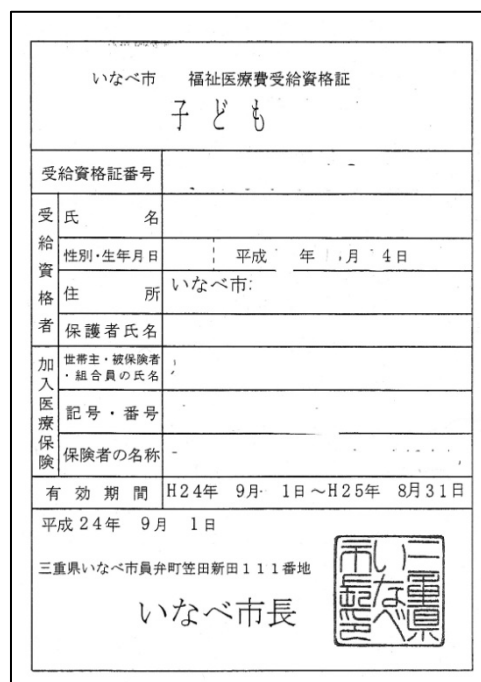 いなべ市 福祉医療費受給資格証
子ども
受給資格証番号
受給資格者
氏名
性別・生年月日 平成 年 月 4日
住所 いなべ市
保護者氏名
加入医療保険
世帯主・被保険者
・組合員の氏名
記号・番号
保険者の名称
有効期間 H24年 9月 1日～H25年 8月31日
平成24年 9月 1日
三重県いなべ市員弁町笠田新田111番地
いなべ市長
三重県
いなべ
市長印